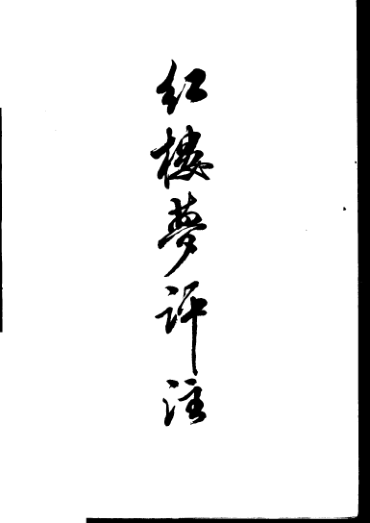 红楼夢评注